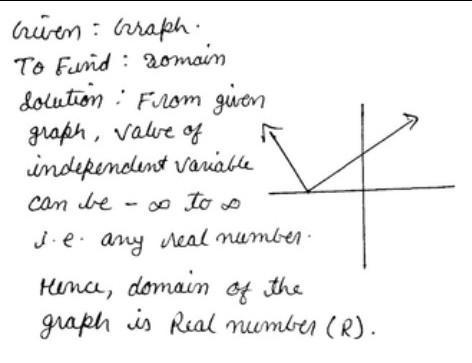 Given : Graph.
To Find : Domain
Solution : From given
graph, value of
independent variable
can be - ∞ to ∞
i.e. any real number.
Hence, domain of the
graph is Real number (R).